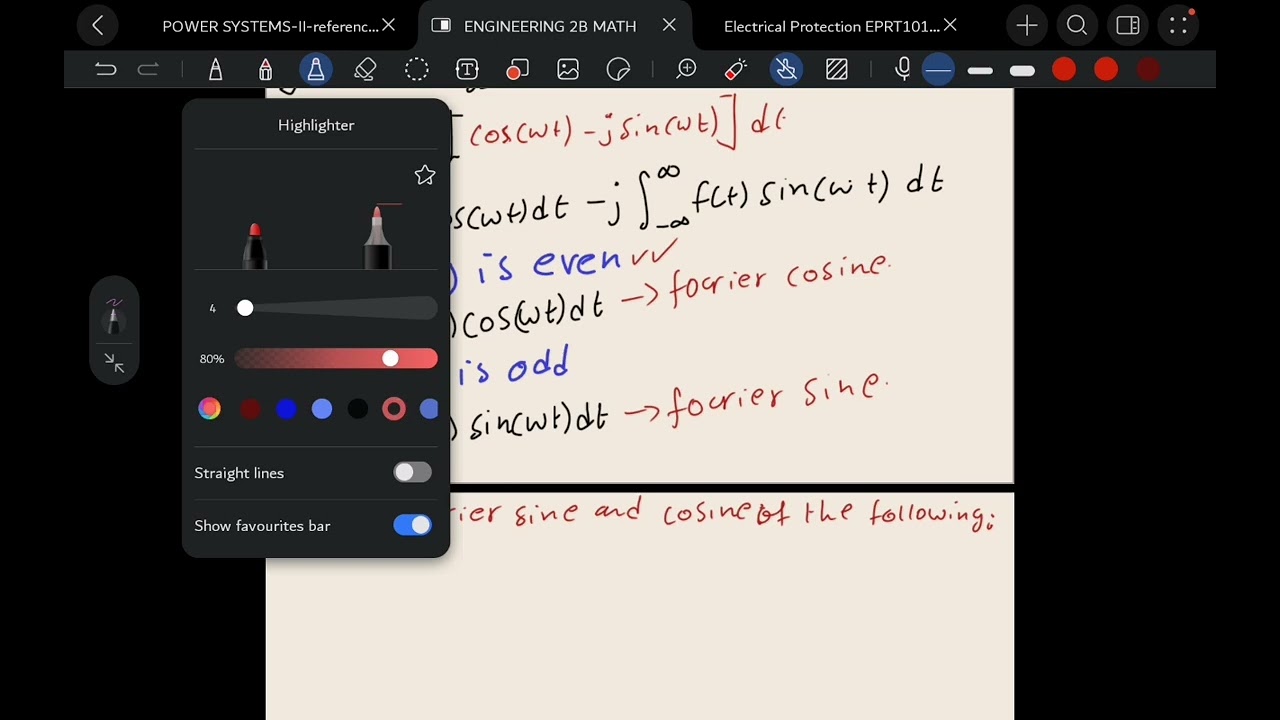 POWER SYSTEMS-II-referenc...
ENGINEERING 2B MATH
Electrical Protection EPRT101...
Highlighter
4
80%
Straight lines
Show favourites bar
cos(ωt) -j sin(ωt)] dt
s(ωt)dt -j ∫_{-∞}^{∞} f(t) sin(ωt) dt
) is even ✓✓
)cos(ωt)dt → fourier cosine.
is odd
) sin(ωt)dt → fourier sine.
rier sine and cosine of the following: